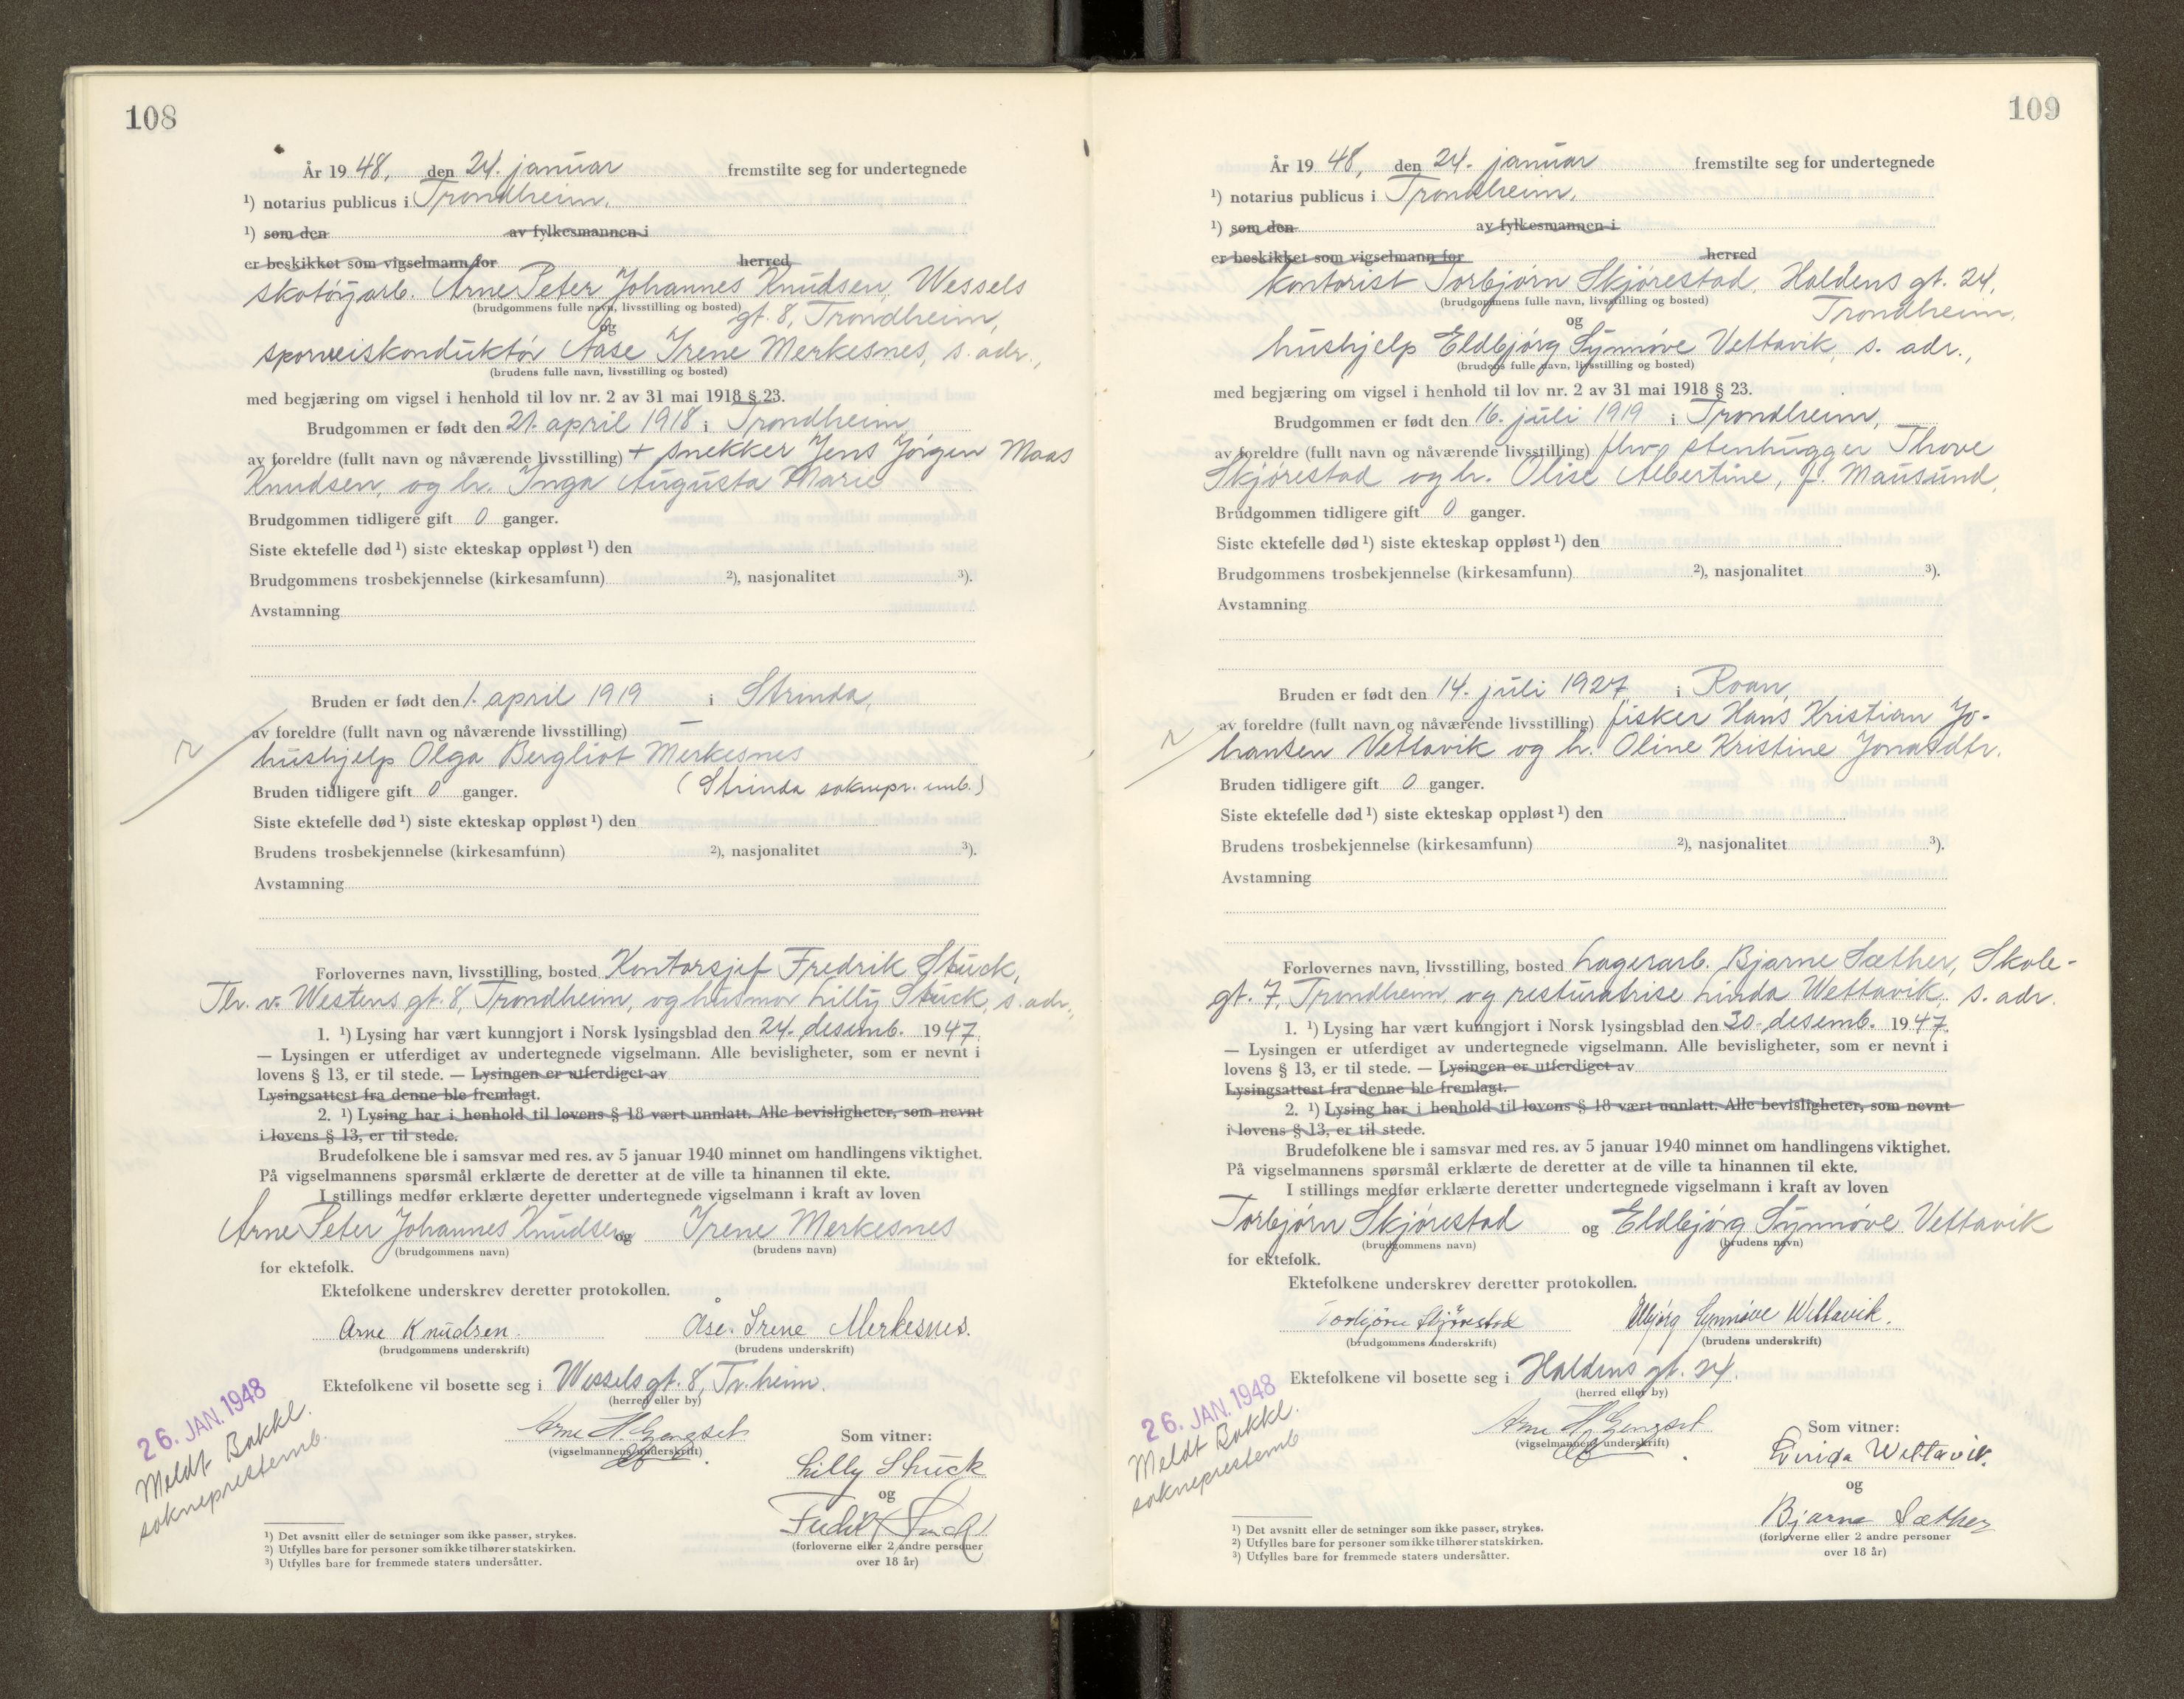 108
År 1948, den 24. januar fremstilte seg for undertegnede
¹) notarius publicus i Trondheim,
¹) som den av fylkesmannen i
er beskikket som vigselmann for herred
skotøyarb. Arne Peter Johannes Knudsen, Wessels
(brudgommens fulle navn, livsstilling og bosted) gt. 8, Trondheim,
og
sporveiskonduktør Aase Irene Merkesnes, s. adr.,
(brudens fulle navn, livsstilling og bosted)
med begjæring om vigsel i henhold til lov nr. 2 av 31 mai 1918 § 23.
Brudgommen er født den 21. april 1918 i Trondheim
av foreldre (fullt navn og nåværende livsstilling) + snekker Jens Jørgen Maas
Knudsen, og h. Inga Augusta Marie
Brudgommen tidligere gift 0 ganger.
Siste ektefelle død ¹) siste ekteskap oppløst ¹) den
Brudgommens trosbekjennelse (kirkesamfunn) ²), nasjonalitet ³).
Avstamning
Bruden er født den 1. april 1919 i Strinda,
av foreldre (fullt navn og nåværende livsstilling) —
hushjelp Olga Bergliot Merkesnes
Bruden tidligere gift 0 ganger. (Strinda soknepr. emb.)
Siste ektefelle død ¹) siste ekteskap oppløst ¹) den
Brudens trosbekjennelse (kirkesamfunn) ²), nasjonalitet ³).
Avstamning
Forlovernes navn, livsstilling, bosted Kontorsjef Fredrik Stuck,
Th. v. Westens gt. 8, Trondheim, og husmor Lilly Stuck, s. adr.,
1. ¹) Lysing har vært kunngjort i Norsk lysingsblad den 24. desemb. 1947.
— Lysingen er utferdiget av undertegnede vigselmann. Alle bevisligheter, som er nevnt i
lovens § 13, er til stede. — Lysingen er utferdiget av
Lysingsattest fra denne ble fremlagt.
2. ¹) Lysing har i henhold til lovens § 18 vært unnlatt. Alle bevisligheter, som nevnt
i lovens § 13, er til stede.
Brudefolkene ble i samsvar med res. av 5 januar 1940 minnet om handlingens viktighet.
På vigselmannens spørsmål erklærte de deretter at de ville ta hinannen til ekte.
I stillings medfør erklærte deretter undertegnede vigselmann i kraft av loven
Arne Peter Johannes Knudsen og Irene Merkesnes
(brudgommens navn) (brudens navn)
for ektefolk.
Ektefolkene underskrev deretter protokollen.
Arne Knudsen. Åse. Irene Merkesnes.
(brudgommens underskrift) (brudens underskrift)
Ektefolkene vil bosette seg i Wessels gt. 8, Tr.heim.
(herred eller by)
26. JAN. 1948
Meldt Bakkl.
sokneprestemb.
(vigselmannens underskrift)
Som vitner:
Lilly Stuck
og
Fredrik Stuck
(forloverne eller 2 andre personer
over 18 år)
¹) Det avsnitt eller de setninger som ikke passer, strykes.
²) Utfylles bare for personer som ikke tilhører statskirken.
³) Utfylles bare for fremmede staters undersåtter.
109
År 1948, den 24. januar fremstilte seg for undertegnede
¹) notarius publicus i Trondheim,
¹) som den av fylkesmannen i
er beskikket som vigselmann for herred
kontorist Torbjørn Skjørestad, Haldens gt. 24,
(brudgommens fulle navn, livsstilling og bosted) Trondheim,
og
hushjelp Eldbjørg Synnøve Vettavik, s. adr.,
(brudens fulle navn, livsstilling og bosted)
med begjæring om vigsel i henhold til lov nr. 2 av 31 mai 1918 § 23.
Brudgommen er født den 16. juli 1919 i Trondheim,
av foreldre (fullt navn og nåværende livsstilling) fhv. stenhugger Thove
Skjørestad og h. Olise Albertine, f. Mausund,
Brudgommen tidligere gift 0 ganger.
Siste ektefelle død ¹) siste ekteskap oppløst ¹) den
Brudgommens trosbekjennelse (kirkesamfunn) ²), nasjonalitet ³).
Avstamning
Bruden er født den 14. juli 1927 i Roan,
av foreldre (fullt navn og nåværende livsstilling) fisker Hans Kristian Jo-
hansen Vettavik og h. Oline Kristine Jonasdtr.
Bruden tidligere gift 0 ganger.
Siste ektefelle død ¹) siste ekteskap oppløst ¹) den
Brudens trosbekjennelse (kirkesamfunn) ²), nasjonalitet ³).
Avstamning
Forlovernes navn, livsstilling, bosted Lagerarb. Bjarne Sæther, Skole-
gt. 7, Trondheim, og resturatrise Linda Wettavik, s. adr.
1. ¹) Lysing har vært kunngjort i Norsk lysingsblad den 30. desemb. 1947.
— Lysingen er utferdiget av undertegnede vigselmann. Alle bevisligheter, som er nevnt i
lovens § 13, er til stede. — Lysingen er utferdiget av
Lysingsattest fra denne ble fremlagt.
2. ¹) Lysing har i henhold til lovens § 18 vært unnlatt. Alle bevisligheter, som nevnt
i lovens § 13, er til stede.
Brudefolkene ble i samsvar med res. av 5 januar 1940 minnet om handlingens viktighet.
På vigselmannens spørsmål erklærte de deretter at de ville ta hinannen til ekte.
I stillings medfør erklærte deretter undertegnede vigselmann i kraft av loven
Torbjørn Skjørestad og Eldbjørg Synnøve Vettavik
(brudgommens navn) (brudens navn)
for ektefolk.
Ektefolkene underskrev deretter protokollen.
Torbjørn Skjørestad Elbjørg Synnøve Wettavik.
(brudgommens underskrift) (brudens underskrift)
Ektefolkene vil bosette seg i Haldens gt. 24.
(herred eller by)
26. JAN. 1948
Meldt Bakkl.
sokneprestemb.
(vigselmannens underskrift)
Som vitner:
Wettavik.
og
Bjarne Sæther
(forloverne eller 2 andre personer
over 18 år)
¹) Det avsnitt eller de setninger som ikke passer, strykes.
²) Utfylles bare for personer som ikke tilhører statskirken.
³) Utfylles bare for fremmede staters undersåtter.